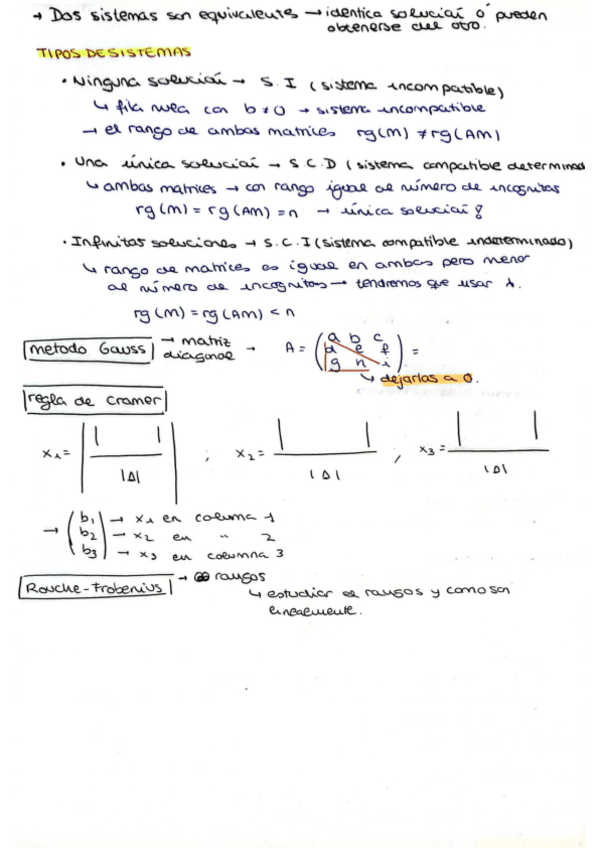 → Dos sistemas son equivalentes → identica solución ó pueden
obtenerse del otro.
TIPOS DE SISTEMAS
• Ninguna solución → S.I (sistema incompatible)
↳ fila nula con b ≠ 0 → sistema incompatible
→ el rango de ambas matrices rg(M) ≠ rg(AM)
• Una única solución → S C.D (sistema compatible determinado
↳ ambas matrices → con rango igual al número de incognitas
rg(M) = rg(AM) = n → única solución
• Infinitas soluciones → S.C.I (sistema compatible indeterminado)
↳ rango de matrices es igual en ambas pero menor
al número de incognitas → tendremos que usar λ.
rg(M) = rg(AM) < n
metodo Gauss → matriz
diagonal → A = ( a b c
d e f
g h i ) =
↳ dejarlas a 0.
regla de cramer
x₁ = | | |
|Δ| ; x₂ = | |
|Δ| , x₃ = | |
|Δ|
→ ( b₁ → x₁ en columna 1
b₂ → x₂ en " 2
b₃ ) → x₃ en columna 3
Rouche-Frobenius → rangos
↳ estudiar el rangos y como son
linealmente.